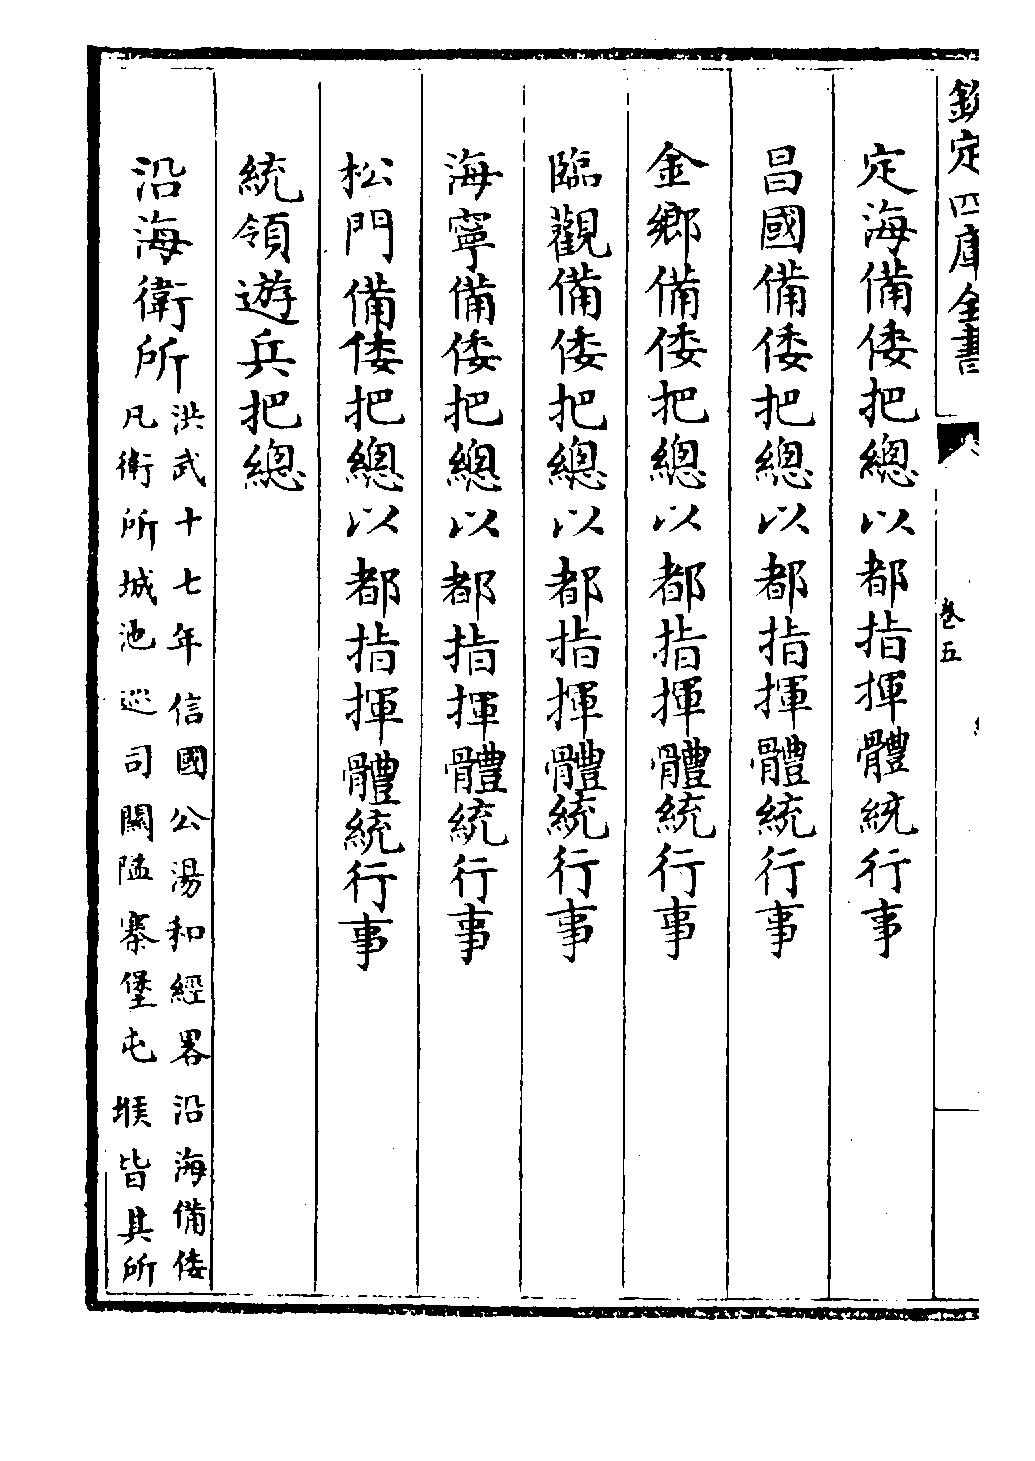 欽定四庫全書
卷五
定海備倭把總以都指揮體統行事
昌國備倭把總以都指揮體統行事
金鄉備倭把總以都指揮體統行事
臨觀備倭把總以都指揮體統行事
海寧備倭把總以都指揮體統行事
松門備倭把總以都指揮體統行事
統領遊兵把總
沿海衛所
洪武十七年信國公湯和經畧沿海備倭
凡衛所城池巡司關隘寨堡屯堠皆其所